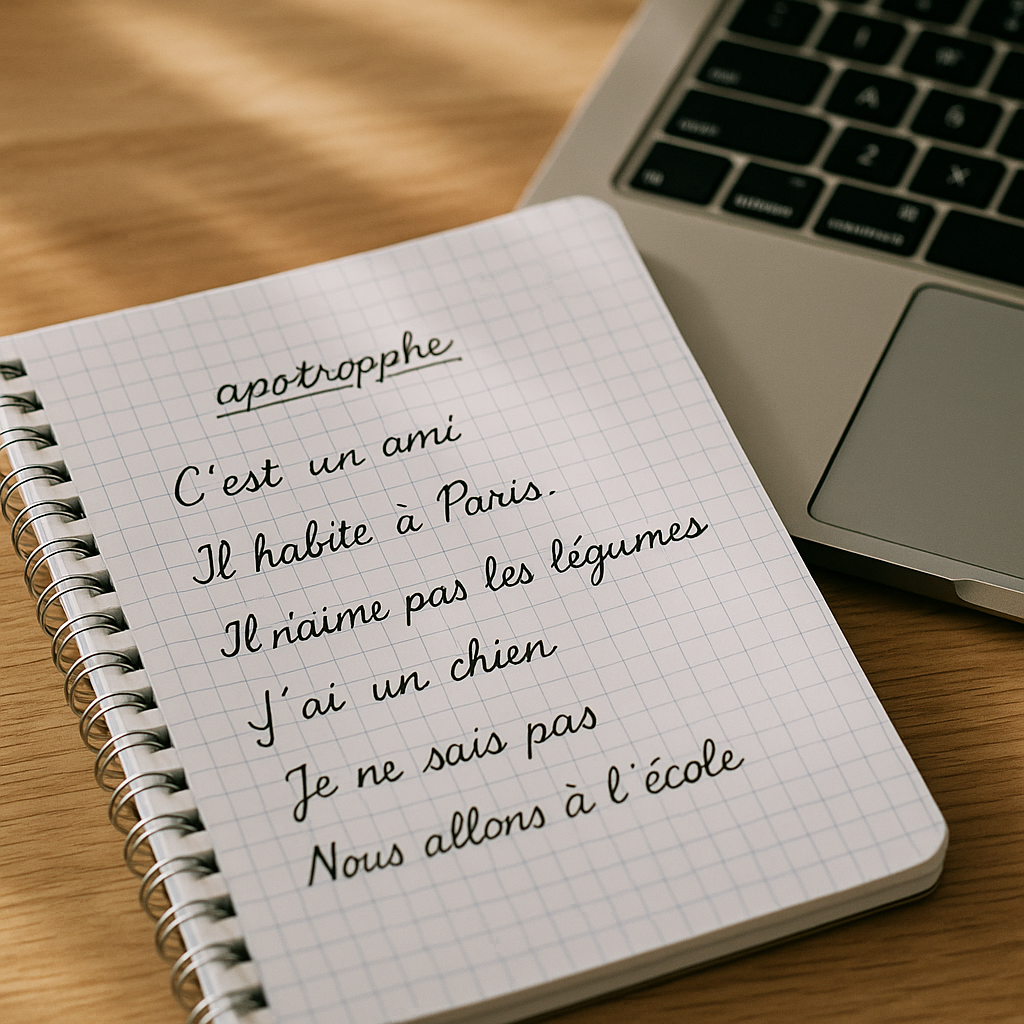 apotropphe
C'est un ami
Il habite à Paris.
Il n'aime pas les légumes
J'ai un chien
Je ne sais pas
Nous allons à l'école